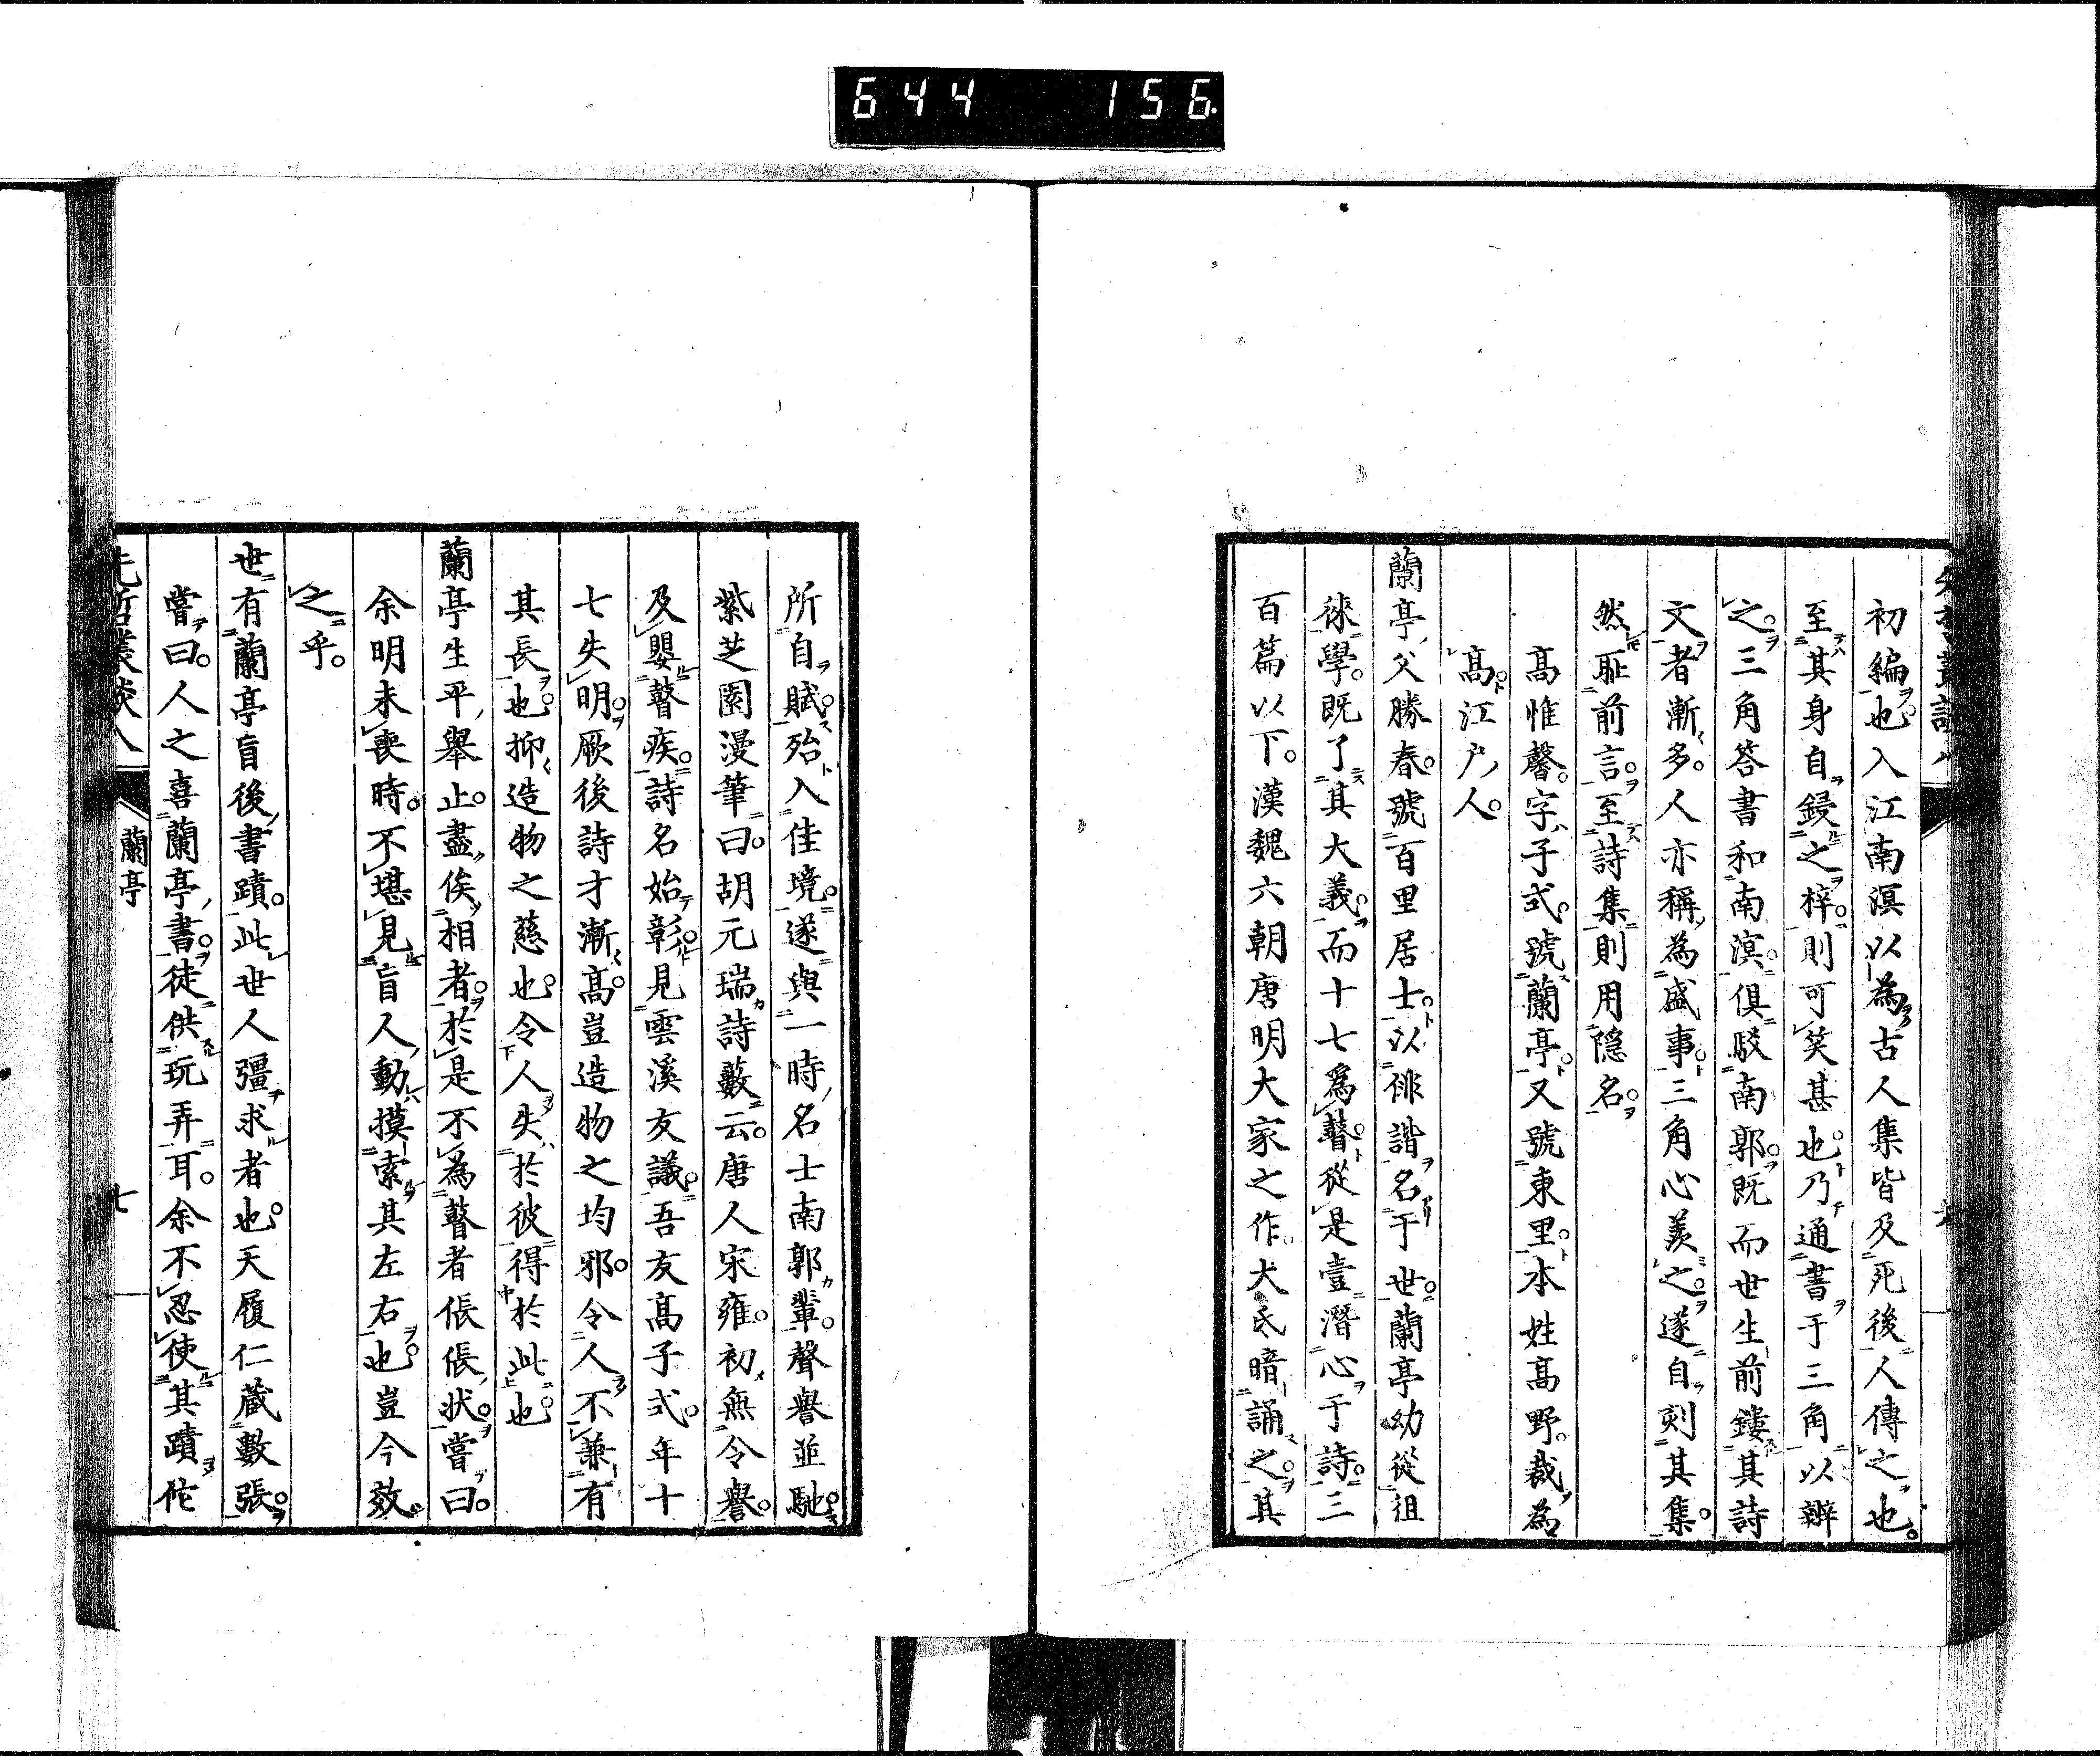 644 156
初編也入江南溟以為古人集皆及死後人傳之也
至其身自鋟之梓則可笑甚也乃通書于三角以辨
之三角答書和南溟俱駁南郭既而世生前鏤其詩
文者漸多人亦稱為盛事三角心羨之遂自刻其集
然耻前言至詩集則用隱名
高惟馨字子式號蘭亭又號東里本姓高野裁為
高江戶人
蘭亭父勝春號百里居士以俳諧名于世蘭亭幼從徂
徠學既了其大義而十七為瞽從是壹潛心于詩三
百篇以下漢魏六朝唐明大家之作大氐暗誦之其
所自賦殆入佳境遂與一時名士南郭輩聲譽並馳
紫芝園漫筆曰胡元瑞詩藪云唐人宋雍初無令譽
及嬰瞽疾詩名始彰見雲溪友議吾友高子式年十
七失明厥後詩才漸高豈造物之均邪令人不兼有
其長也抑造物之慈也令人失於彼得於此也
蘭亭生平舉止盡俟相者於是不為瞽者倀倀狀嘗曰
余明未喪時不堪見盲人動摸索其左右也豈今效
之乎
世有蘭亭盲後書蹟此世人彊求者也天履仁蔵數張
嘗曰人之喜蘭亭書徒供玩弄耳余不忍使其蹟佗
先哲叢談八 蘭亭 七